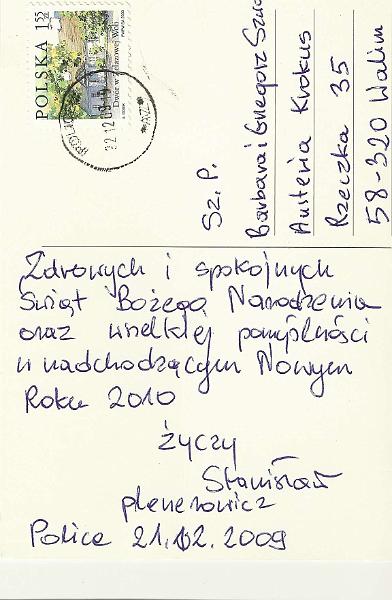 POLSKA 1,55 ZŁ
Dwór w Żelazowej Woli
22.12.09
Sz. P.
Barbara i Grzegorz
Austeria Krokus
Rzeczka 35
58-320 Walim
Zdrowych i spokojnych
Świąt Bożego Narodzenia
oraz wielkiej pomyślności
w nadchodzącym Nowym
Roku 2010
życzy
Stanisław
plenerowicz
Police 21.12.2009